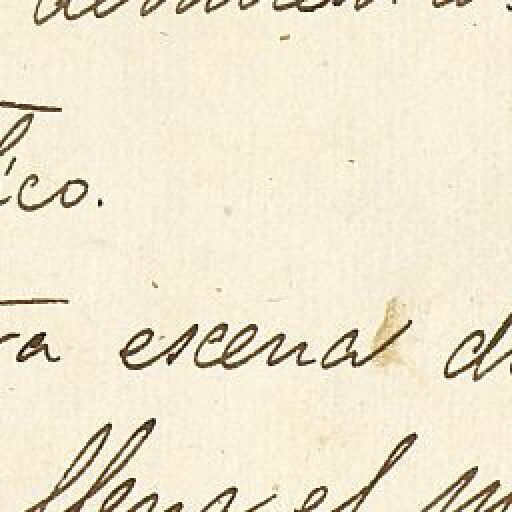 ico.
ra escena d
llena el m